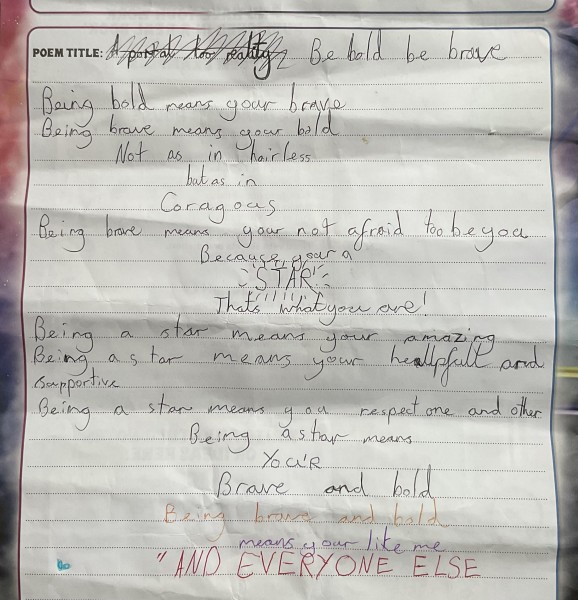 POEM TITLE: A portal too reality Be bold be brave
Being bold means your brave
Being brave means your bold
Not as in hairless
but as in
Coragous
Being brave means your not afraid too be you
Because your a
STAR
Thats what you are!
Being a star means your amazing
Being a star means your heallpfull and
supportive
Being a star means you respect one and other
Being a star means
YOU'R
Brave and bold
Being brave and bold
means your like me
"AND EVERYONE ELSE